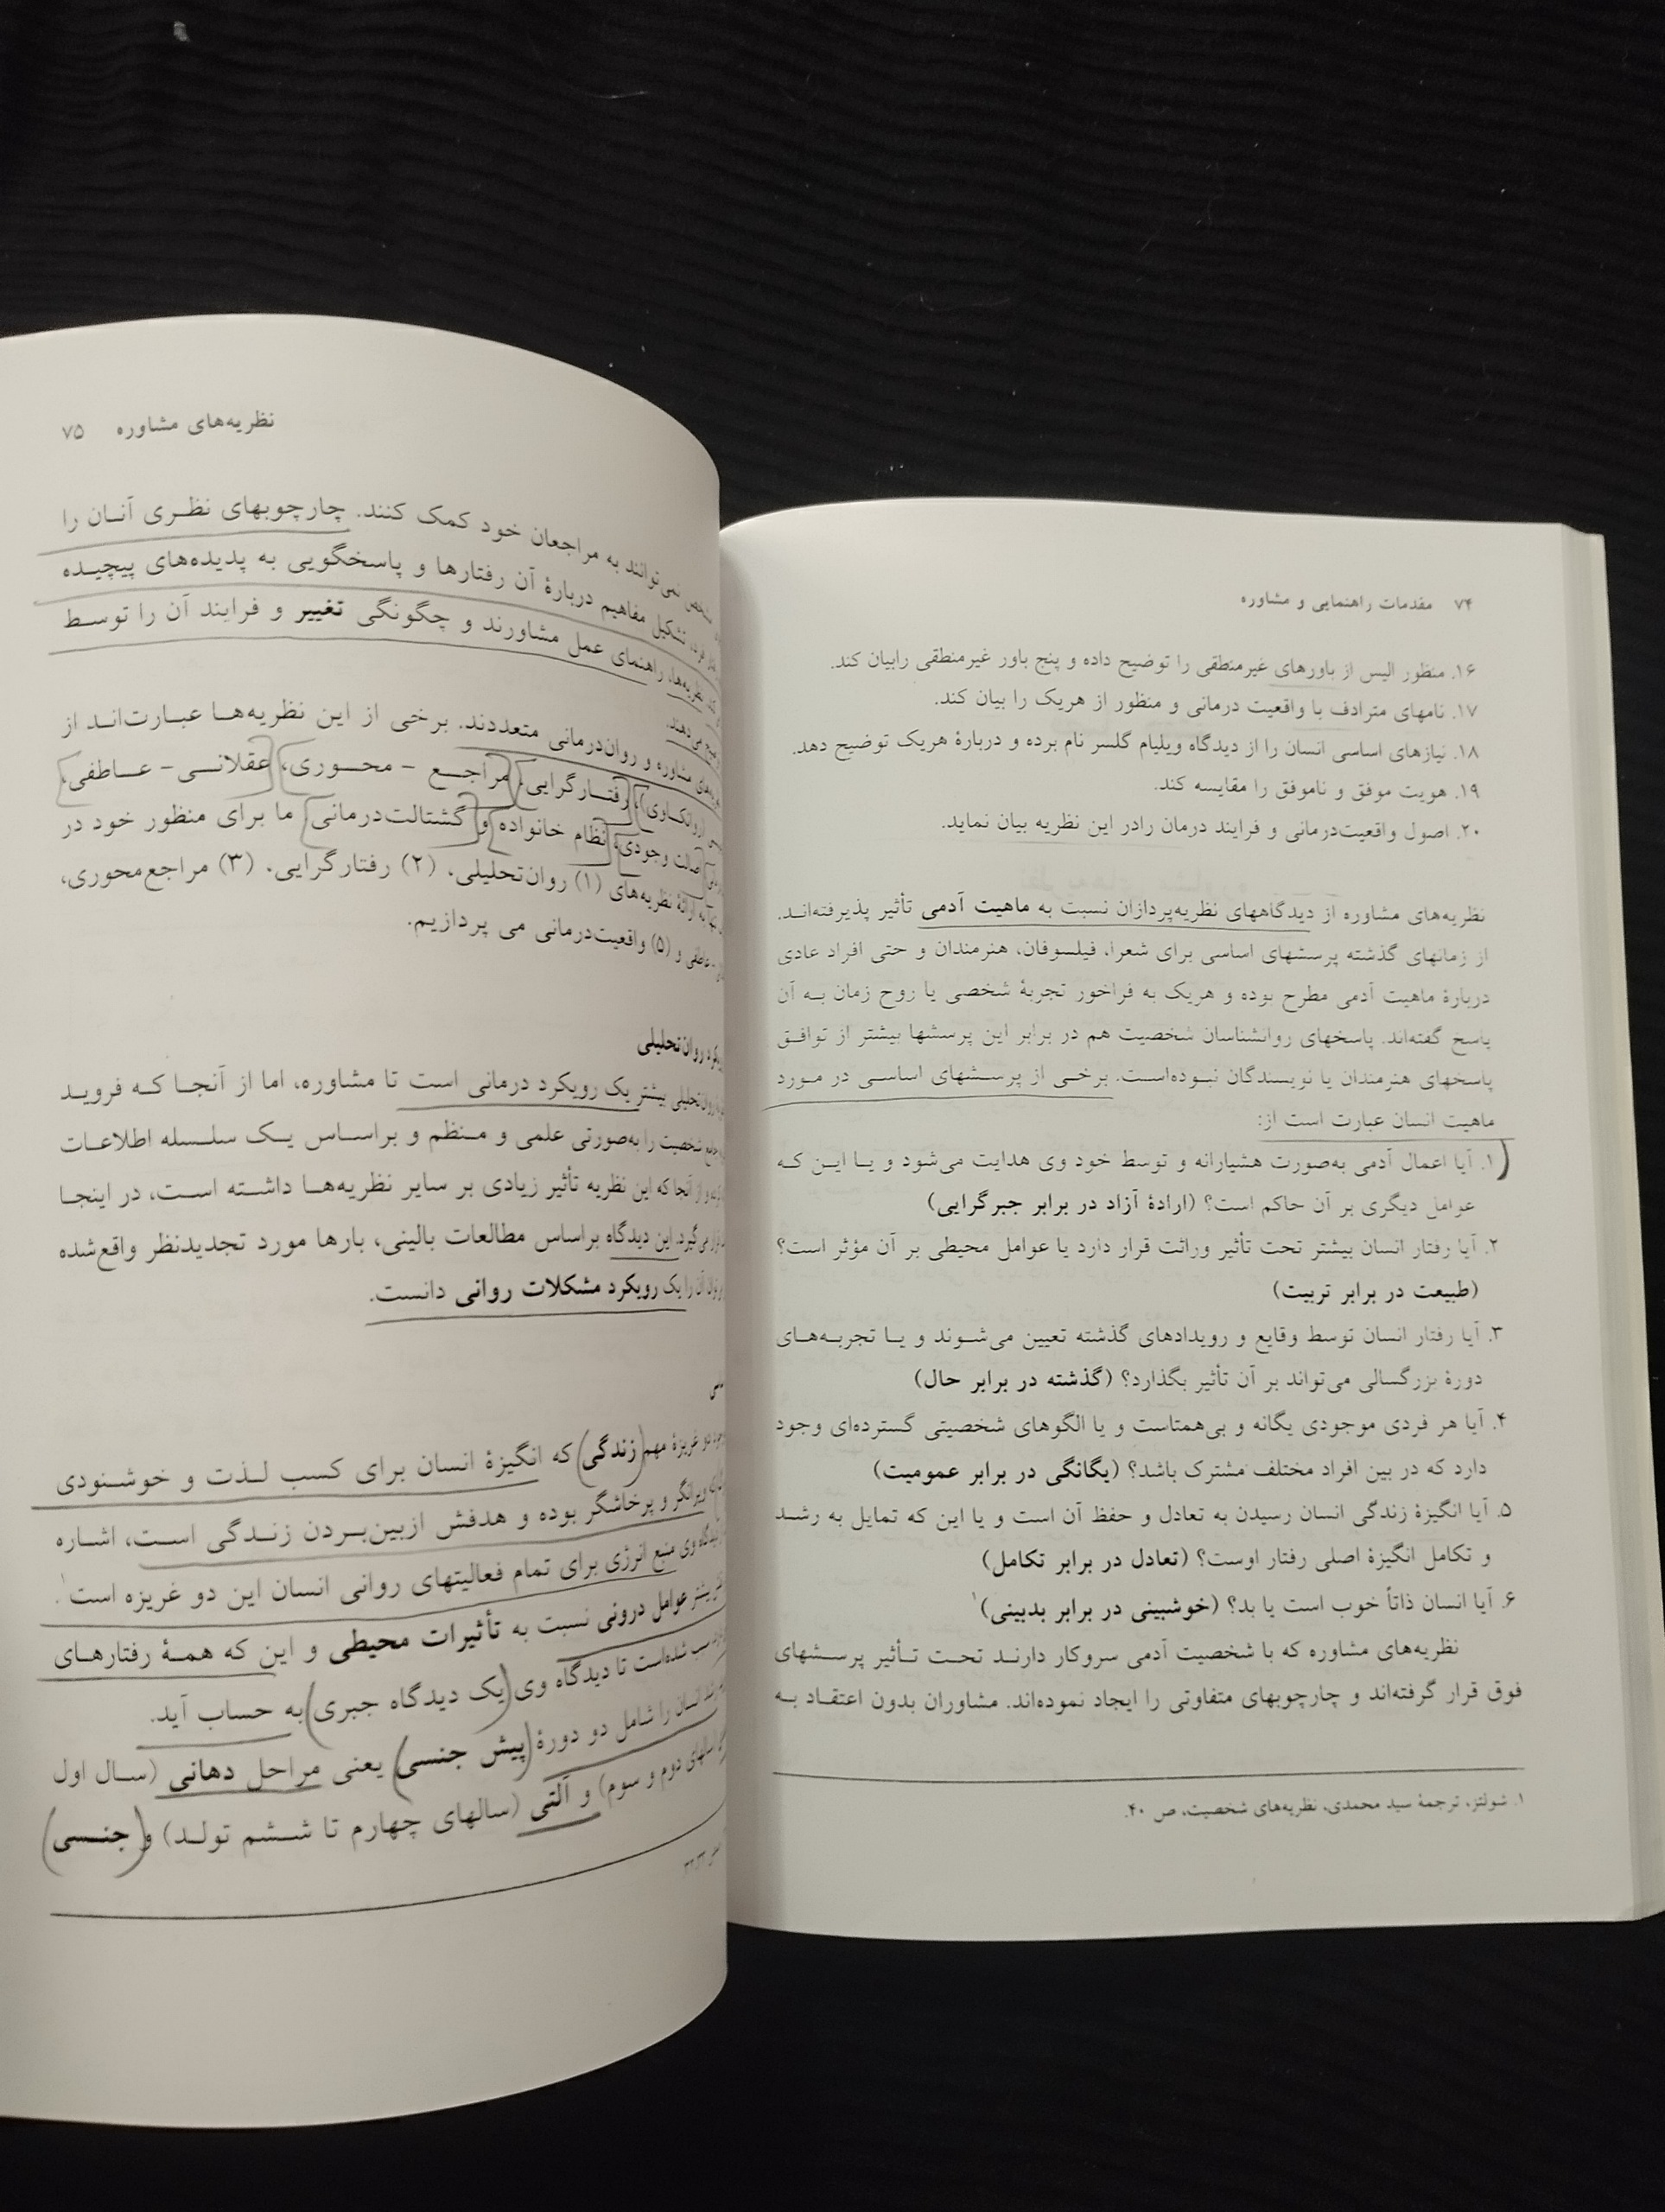 ۷۴ مقدمات راهنمایی و مشاوره
۱۶. منظور الیس از باورهای غیرمنطقی را توضیح داده و پنج باور غیرمنطقی رابیان کند.
۱۷. نامهای مترادف با واقعیت درمانی و منظور از هریک را بیان کند.
۱۸. نیازهای اساسی انسان را از دیدگاه ویلیام گلسر نام برده و دربارهٔ هریک توضیح دهد.
۱۹. هویت موفق و ناموفق را مقایسه کند.
۲۰. اصول واقعیت‌درمانی و فرایند درمان رادر این نظریه بیان نماید.
نظریه‌های مشاوره از دیدگاههای نظریه‌پردازان نسبت به ماهیت آدمی تأثیر پذیرفته‌انـد.
از زمانهای گذشته پرسشهای اساسی برای شعرا، فیلسوفان، هنرمندان و حتی افراد عادی
دربارهٔ ماهیت آدمی مطرح بوده و هریک به فراخور تجربهٔ شخصی یا روح زمان بـه آن
پاسخ گفته‌اند. پاسخهای روانشناسان شخصیت هم در برابر این پرسشها بیشتر از توافـق
پاسخهای هنرمندان یا نویسندگان نبـوده‌اسـت. برخـی از پرسـشهای اساسـی در مـورد
ماهیت انسان عبارت است از:
۱. آیا اعمال آدمی به‌صورت هشیارانه و توسط خود وی هدایت می‌شود و یـا ایـن کـه
عوامل دیگری بر آن حاکم است؟ (ارادهٔ آزاد در برابر جبرگرایی)
۲. آیا رفتار انسان بیشتر تحت تأثیر وراثت قرار دارد یا عوامل محیطی بر آن مؤثر است؟
(طبیعت در برابر تربیت)
۳. آیا رفتار انسان توسط وقایع و رویدادهای گذشته تعیین می‌شـوند و یـا تجربـه‌هـای
دورهٔ بزرگسالی می‌تواند بر آن تأثیر بگذارد؟ (گذشته در برابر حال)
۴. آیا هر فردی موجودی یگانه و بی‌همتاست و یا الگوهای شخصیتی گسترده‌ای وجود
دارد که در بین افراد مختلف مشترک باشد؟ (یگانگی در برابر عمومیت)
۵. آیا انگیزهٔ زندگی انسان رسیدن به تعادل و حفظ آن است و یا این که تمایل به رشـد
و تکامل انگیزهٔ اصلی رفتار اوست؟ (تعادل در برابر تکامل)
۶. آیا انسان ذاتاً خوب است یا بد؟ (خوشبینی در برابر بدبینی)۱
نظریه‌های مشاوره که با شخصیت آدمی سروکار دارنـد تحـت تـأثیر پرسـشهای
فوق قرار گرفته‌اند و چارچوبهای متفاوتی را ایجاد نموده‌اند. مشاوران بدون اعتقـاد بـه
۱. شولتز، ترجمهٔ سید محمدی، نظریه‌های شخصیت، ص ۴۰.
نظریه‌های مشاوره ۷۵
نمی‌توانند به مراجعان خود کمک کنند. چارچوبهای نظـری آنـان را
تشکیل مفاهیم دربارهٔ آن رفتارها و پاسخگویی به پدیده‌های پیچیـده
نظریه‌ها، راهنمای عمل مشاورند و چگونگی تغییر و فرایند آن را توسـط
می‌دهند.
مشاوره و روان‌درمانی متعددند. برخی از این نظریه‌هـا عبـارت‌انـد از
(روانکـاوی)، رفتـارگرایی، مراجـع - محـوری، عقلانـی- عـاطفی،
وجودی، نظام خانواده و گشتالت‌درمانی ما برای منظور خود در
ارائهٔ نظریه‌های (۱) روان‌تحلیلی. (۲) رفتارگرایی. (۳) مراجع‌محوری،
عاطفی و (۵) واقعیت‌درمانی می پردازیم.
روان‌تحلیلی
روان‌تحلیلی بیشتر یک رویکرد درمانی است تا مشاوره، اما از آنجـا کـه فرویـد
جامع شخصیت را به‌صورتی علمی و مـنظم و براسـاس یـک سلـسله اطلاعـات
و از آنجا که این نظریه تأثیر زیادی بر سایر نظریه‌هـا داشـته اسـت، در اینجـا
می‌گیرد. این دیدگاه براساس مطالعات بالینی، بارها مورد تجدیدنظر واقع‌شده
آن را یک رویکرد مشکلات روانی دانست.
دو غریزهٔ مهم (زندگی) که انگیزهٔ انسان برای کسب لـذت و خوشـنودی
ویرانگر و پرخاشگر بوده و هدفش ازبین‌بـردن زنـدگی اسـت، اشـاره
وی منبع انرژی برای تمام فعالیتهای روانی انسان این دو غریزه است۱.
بیشتر عوامل درونی نسبت به تأثیرات محیطی و این که همـهٔ رفتارهـای
سبب شده‌است تا دیدگاه وی (یک دیدگاه جبری) به حساب آید.
انسان را شامل دو دورهٔ (پیش جنسی) یعنی مراحل دهانی (سـال اول
سالهای دوم و سوم) و آلتی (سالهای چهارم تا شـشم تولـد) و (جنـسی)